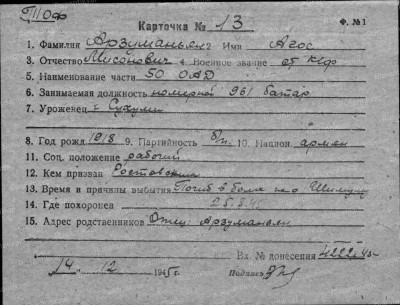 ТТОФ
Карточка № 13
Ф. № 1
1. Фамилия Арзуманьян 2. Имя Агос
3. Отчество Мисонович 4. Военное звание ст кр-ф
5. Наименование части 50 ОАД
6. Занимаемая должность номерной 961 батар
7. Уроженец г. Сухуми
8. Год рожд 1918 9. Партийность б/п. 10. Национ. армян
11. Соц. положение рабочий
12. Кем призван Ростовским
13. Время и причины выбытия Погиб в бою на о Шимушу
14. Где похоронен 25.8.45
15. Адрес родственников Отец: Арзуманьян
Вх. № донесения 4222. 45
14. 12 1945 г.
Подпись